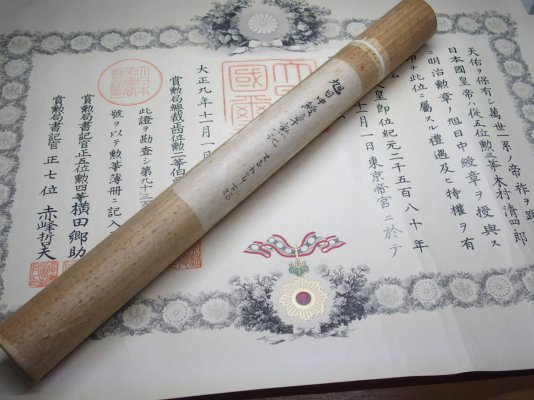 天佑ヲ保有シ萬世一系ノ帝祚ヲ踐
日本國皇帝ハ從五位勳三等木村清四郎
ニ明治勲章ノ旭日中綬章ヲ授與ス
チ此位ニ屬スル禮遇及ヒ特權ヲ有
ム
皇即位紀元二千五百八十年
十一月一日東京帝宮ニ於テ
大正九年十一月一
賞勳局總裁正四位勳二等伯
此證ヲ勘査シ第九十三
號ヲ以テ勲章簿冊ニ記入
賞勳局書記官正五位勳四等横田郷助
賞勳局書記官正七位赤峰哲夫
旭日中綬章勲記